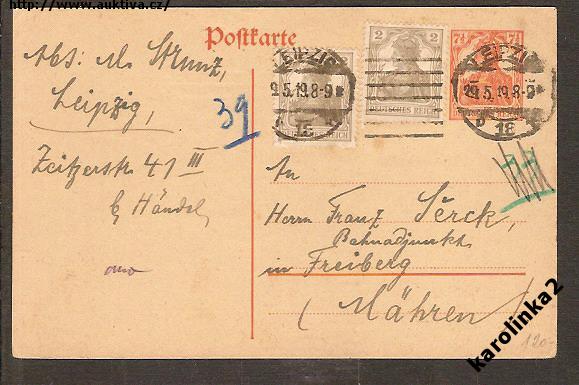 http://www.auktiva.cz/
Postkarte
Abs: M. Strunz,
Leipzig,
Zeitzerstr. 41 III
b/ Händel
39
LEIPZIG
29.5.19.8-9*
18
2 2
DEUTSCHES REICH
7½ 7½
LEIPZIG
29.5.19.8-9*
18
An
Herrn Franz Serck,
Bahnadjunkt
in Freiberg
(Mähren)
120-
karolinka2